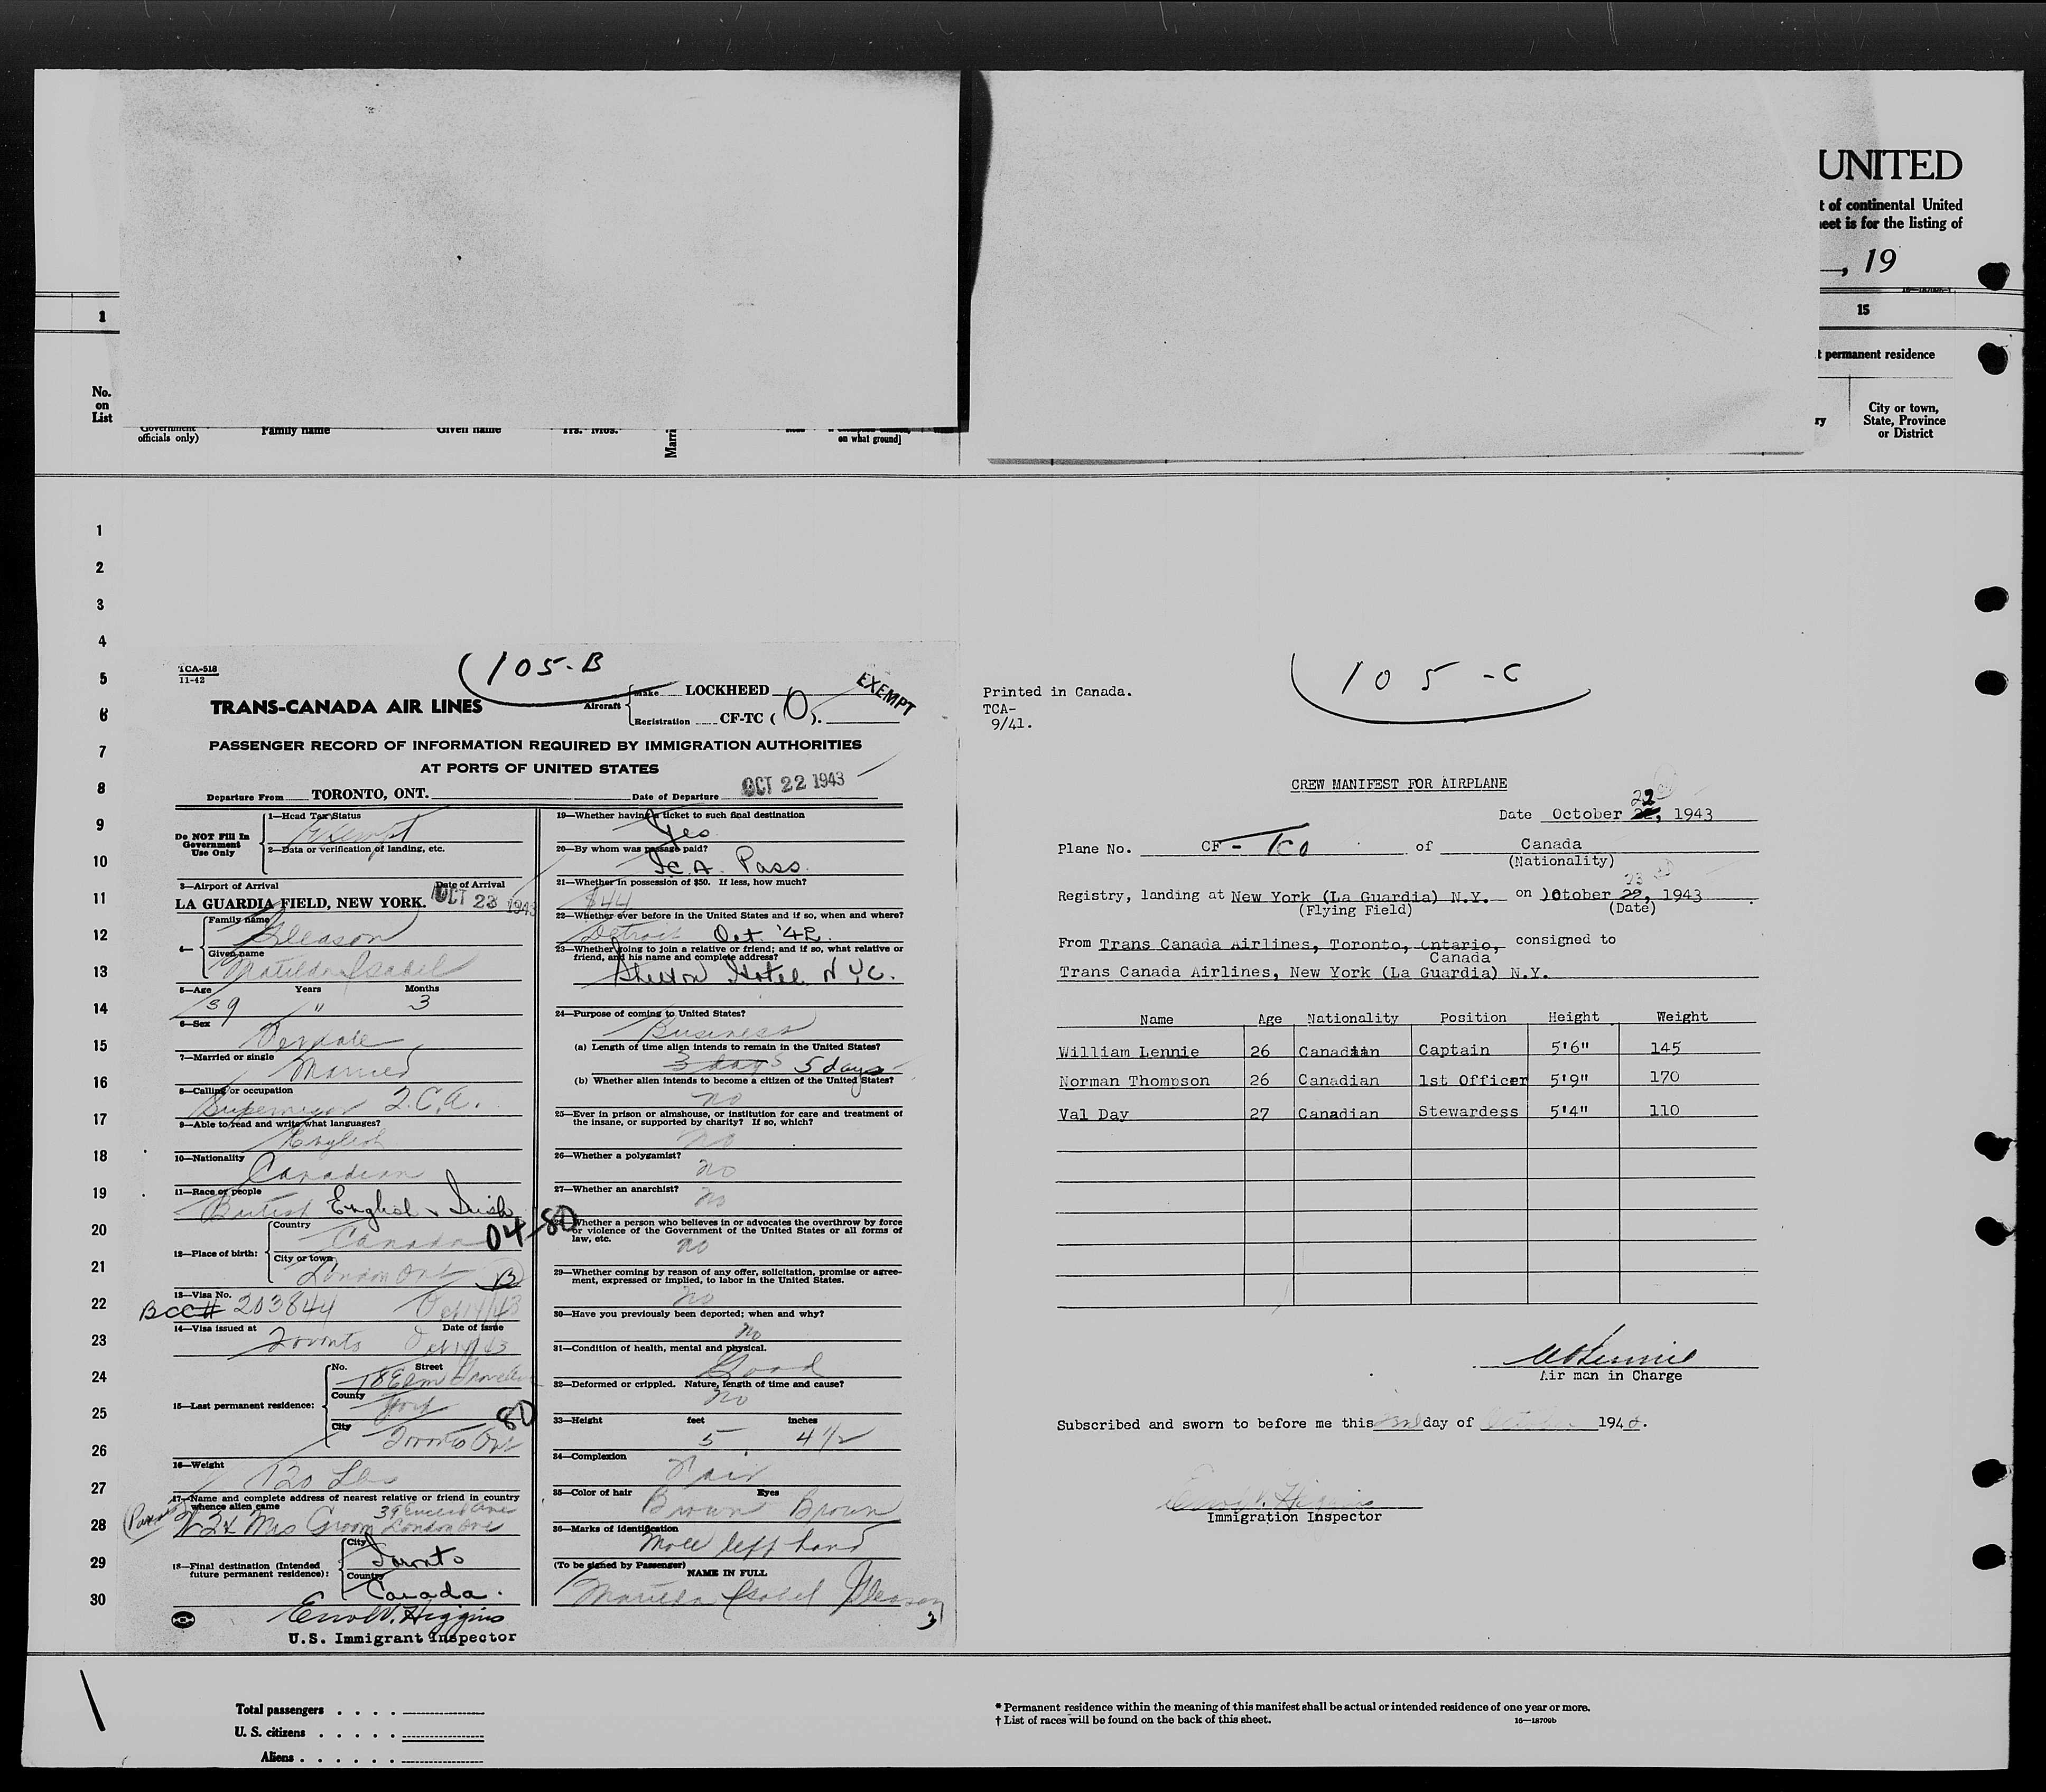 UNITED
t of continental United
eet is for the listing of
, 19
1
15
t permanent residence
No.
on
List
ry
City or town,
State, Province
or District
Government
officials only)
Family name
Given name
Yrs. Mos.
Marri
on what ground]
1
2
3
4
5
6
7
8
9
10
11
12
13
14
15
16
17
18
19
20
21
22
23
24
25
26
27
28
29
30
TCA-518
11-42
105-B
TRANS-CANADA AIR LINES
Aircraft
Make LOCKHEED
Registration CF-TC ( O ).
EXEMPT
PASSENGER RECORD OF INFORMATION REQUIRED BY IMMIGRATION AUTHORITIES
AT PORTS OF UNITED STATES
Departure From TORONTO, ONT. Date of Departure OCT 22 1943
Do NOT Fill In
Government
Use Only
1—Head Tax Status
Exempt
2—Data or verification of landing, etc.
3—Airport of Arrival Date of Arrival
LA GUARDIA FIELD, NEW YORK. OCT 23 1943
4— Family name
Gleason
Given name
Matilda Isabel
5—Age Years Months
39 " 3
6—Sex
7—Married or single
Married
8—Calling or occupation
Supervisor T.C.A.
9—Able to read and write what languages?
English
10—Nationality
Canadian
11—Race or people
British English & Irish
12—Place of birth:
Country
Canada 04-80
City or town
London Ont B
13—Visa No.
BCC# 203844 Oct 14/43
14—Visa issued at Date of issue
Toronto Oct 14/43
15—Last permanent residence:
No. Street
78 Elm
County
York
City 80
Toronto Ont
16—Weight
120 Lbs
17—Name and complete address of nearest relative or friend in country
whence alien came
Mrs Groom 39 Euclid Ave
London Ont
18—Final destination (Intended
future permanent residence):
City
Toronto
Country
Canada.
Errol V. Higgins
U.S. Immigrant Inspector
19—Whether having a ticket to such final destination
Yes
20—By whom was passage paid?
T.C.A. Pass.
21—Whether in possession of $50. If less, how much?
$44
22—Whether ever before in the United States and if so, when and where?
Detroit Oct. '42.
23—Whether going to join a relative or friend; and if so, what relative or
friend, and his name and complete address?
Shelton Hotel N.Y.C.
24—Purpose of coming to United States?
Business
(a) Length of time alien intends to remain in the United States?
3 days 5 days
(b) Whether alien intends to become a citizen of the United States?
no
25—Ever in prison or almshouse, or institution for care and treatment of
the insane, or supported by charity? If so, which?
no
26—Whether a polygamist?
no
27—Whether an anarchist?
no
28—Whether a person who believes in or advocates the overthrow by force
or violence of the Government of the United States or all forms of
law, etc.
no
29—Whether coming by reason of any offer, solicitation, promise or agree-
ment, expressed or implied, to labor in the United States.
no
30—Have you previously been deported; when and why?
no
31—Condition of health, mental and physical.
Good
32—Deformed or crippled. Nature, length of time and cause?
no
33—Height feet inches
5 4 1/2
34—Complexion
Fair
35—Color of hair Eyes
Brown Brown
36—Marks of identification
Mole left hand
(To be signed by Passenger)
NAME IN FULL
Matilda Isabel Gleason
3
105-C
Printed in Canada.
TCA-
9/41.
CREW MANIFEST FOR AIRPLANE
22
Date October 22, 1943
Plane No. CF-TCO of Canada
(Nationality)
23
Registry, landing at New York (La Guardia) N.Y. on October 22, 1943
(Flying Field) (Date)
From Trans Canada Airlines, Toronto, Ontario, consigned to
Canada
Trans Canada Airlines, New York (La Guardia) N.Y.
Name Age Nationality Position Height Weight
William Lennie 26 Canadian Captain 5'6" 145
Norman Thompson 26 Canadian 1st Officer 5'9" 170
Val Day 27 Canadian Stewardess 5'4" 110
Air man in Charge
Subscribed and sworn to before me this 23rd day of October 194
Errol V. Higgins
Immigration Inspector
Total passengers
U. S. citizens
Aliens
* Permanent residence within the meaning of this manifest shall be actual or intended residence of one year or more.
† List of races will be found on the back of this sheet.
16—18709b